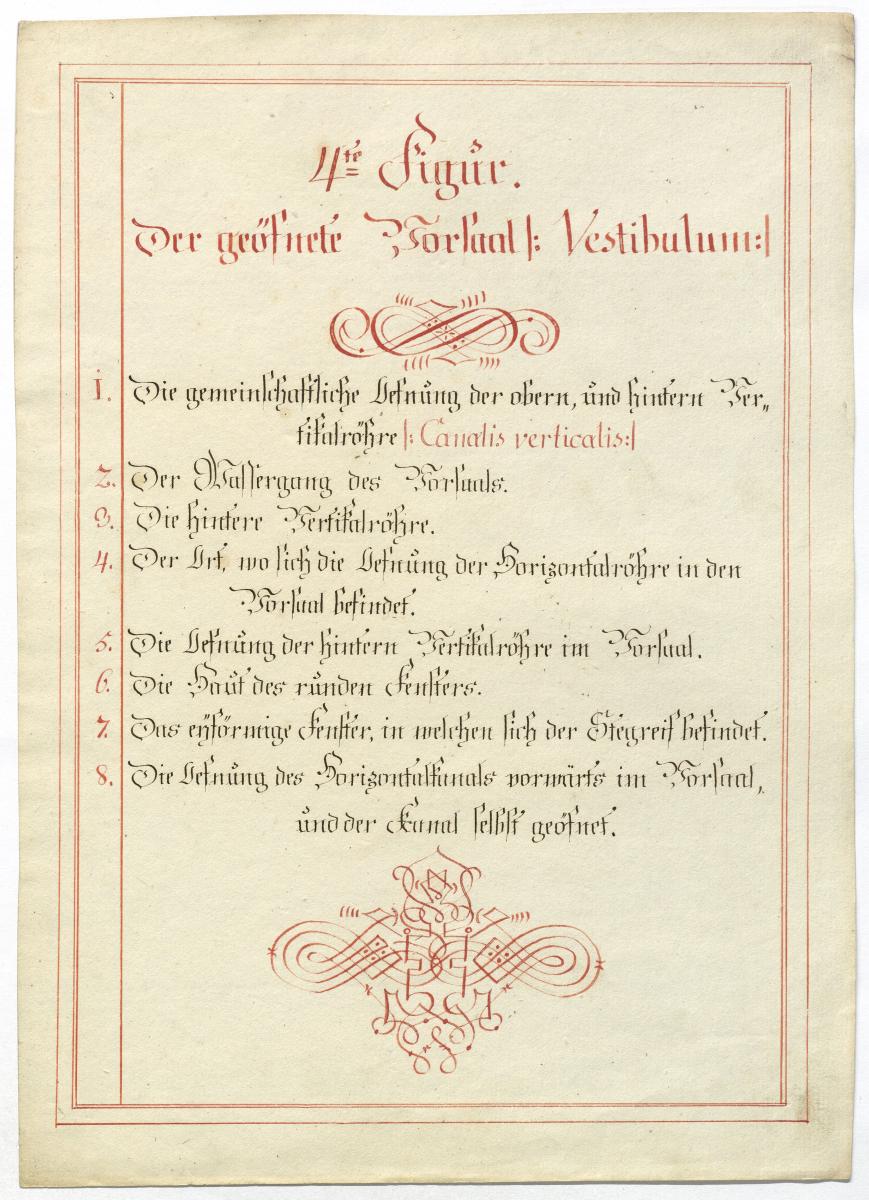 4te Figur.
Der geöfnete Vorsaal |: Vestibulum :|
1. Die gemeinschaftliche Oefnung der obern, und hintern Ver„
tikalröhre |: Canalis verticalis :|
2. Der Wassergang des Vorsaals.
3. Die hintere Vertikalröhre.
4. Der Ort, wo sich die Oefnung der Horizontalröhre in den
Vorsaal befindet.
5. Die Oefnung der hintern Vertikalröhre im Vorsaal.
6. Die Haut des runden Fensters.
7. Das eyförmige Fenster, in welchen sich der Stegreif befindet.
8. Die Oefnung des Horizontalkanals vorwärts im Vorsaal,
und der Kanal selbst geöfnet.